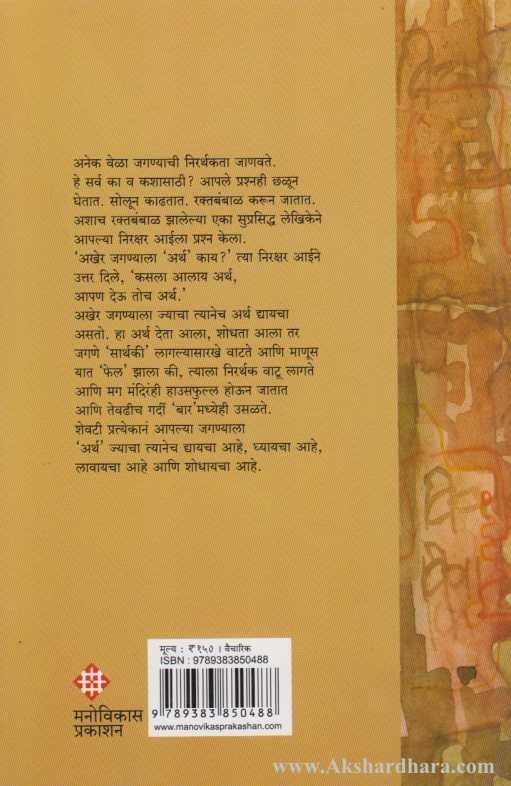 अनेक वेळा जगण्याची निरर्थकता जाणवते.
हे सर्व का व कशासाठी? आपले प्रश्नही छळून
घेतात. सोलून काढतात. रक्तबंबाळ करून जातात.
अशाच रक्तबंबाळ झालेल्या एका सुप्रसिद्ध लेखिकेने
आपल्या निरक्षर आईला प्रश्न केला.
‘अखेर जगण्याला ‘अर्थ’ काय?’ त्या निरक्षर आईने
उत्तर दिले, ‘कसला आलाय अर्थ,
आपण देऊ तोच अर्थ.’
अखेर जगण्याला ज्याचा त्यानेच अर्थ द्यायचा
असतो. हा अर्थ देता आला, शोधता आला तर
जगणे ‘सार्थकी’ लागल्यासारखे वाटते आणि माणूस
यात ‘फेल’ झाला की, त्याला निरर्थक वाटू लागते
आणि मग मंदिरंही हाउसफुल्ल होऊन जातात
आणि तेवढीच गर्दी ‘बार’मध्येही उसळते.
शेवटी प्रत्येकानं आपल्या जगण्याला
‘अर्थ’ ज्याचा त्यानेच द्यायचा आहे, घ्यायचा आहे,
लावायचा आहे आणि शोधायचा आहे.
मूल्य : ₹१५० । वैचारिक
ISBN : 9789383850488
9 789383 850488
www.manovikasprakashan.com
मनोविकास
प्रकाशन
www.Akshardhara.com